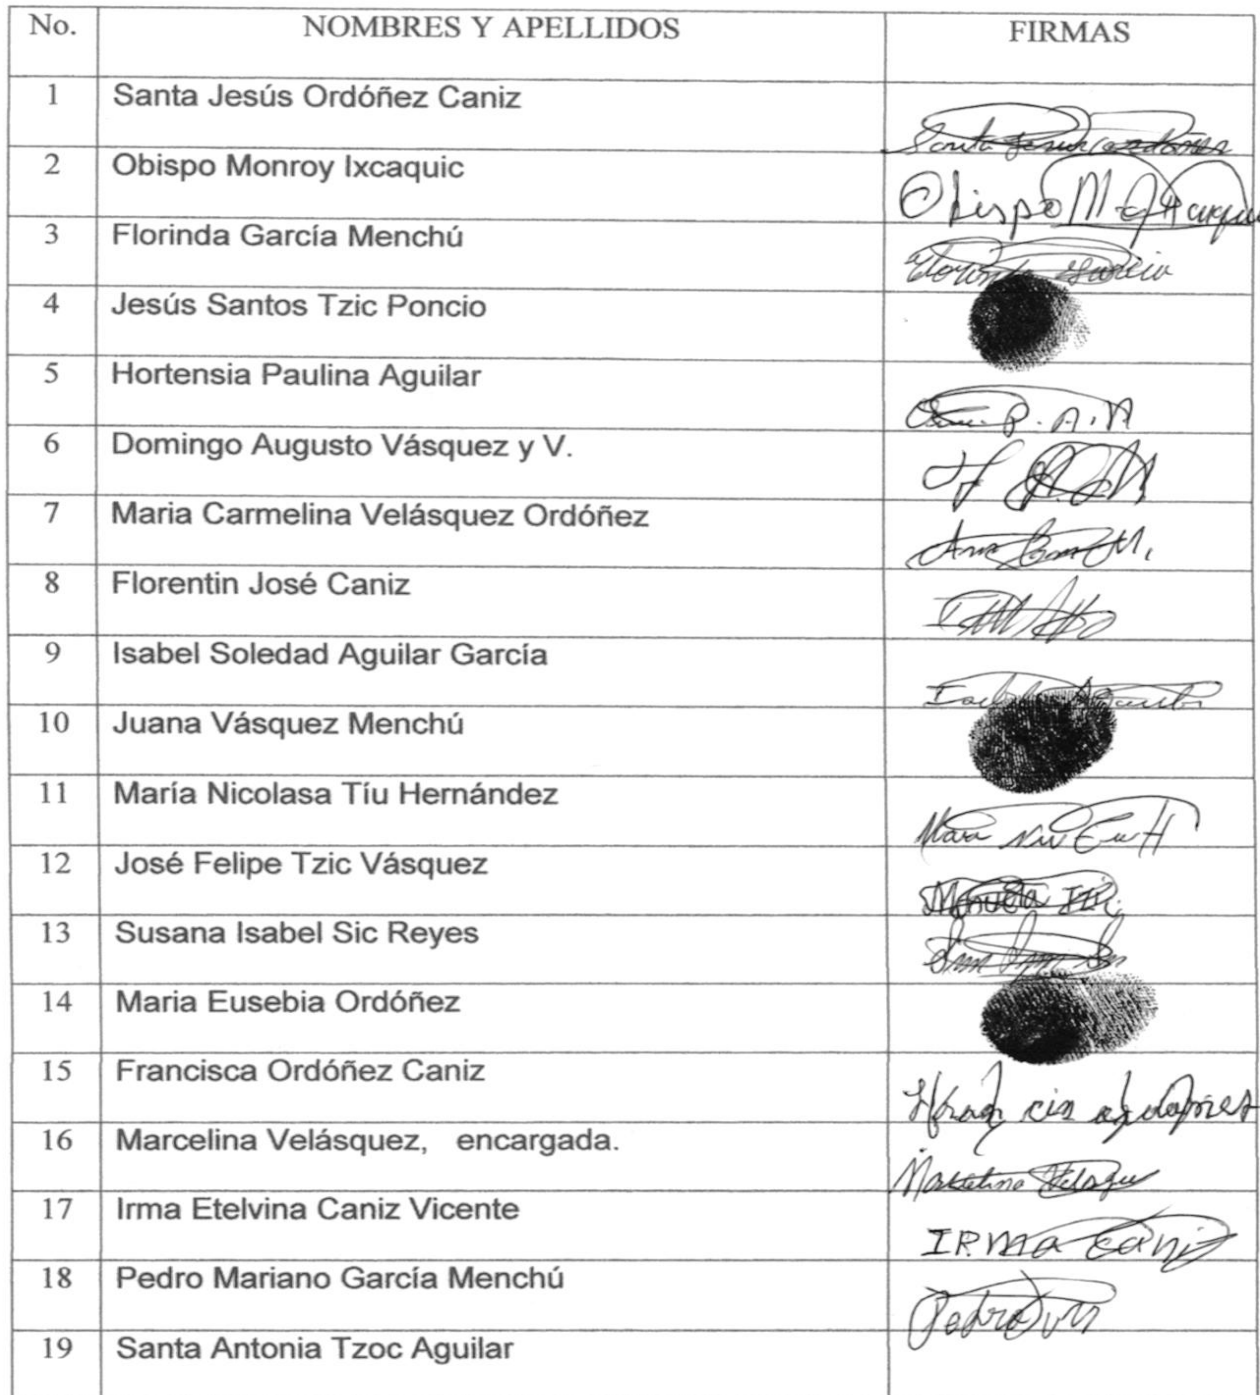 No. NOMBRES Y APELLIDOS FIRMAS
1 Santa Jesús Ordóñez Caniz
2 Obispo Monroy Ixcaquic Obispo M
3 Florinda García Menchú Florinda Garcia
4 Jesús Santos Tzic Poncio
5 Hortensia Paulina Aguilar P. A. A
6 Domingo Augusto Vásquez y V.
7 Maria Carmelina Velásquez Ordóñez
8 Florentin José Caniz
9 Isabel Soledad Aguilar García
10 Juana Vásquez Menchú
11 María Nicolasa Tíu Hernández
12 José Felipe Tzic Vásquez
13 Susana Isabel Sic Reyes
14 Maria Eusebia Ordóñez
15 Francisca Ordóñez Caniz
16 Marcelina Velásquez, encargada.
17 Irma Etelvina Caniz Vicente IRMA Caniz
18 Pedro Mariano García Menchú Pedro
19 Santa Antonia Tzoc Aguilar